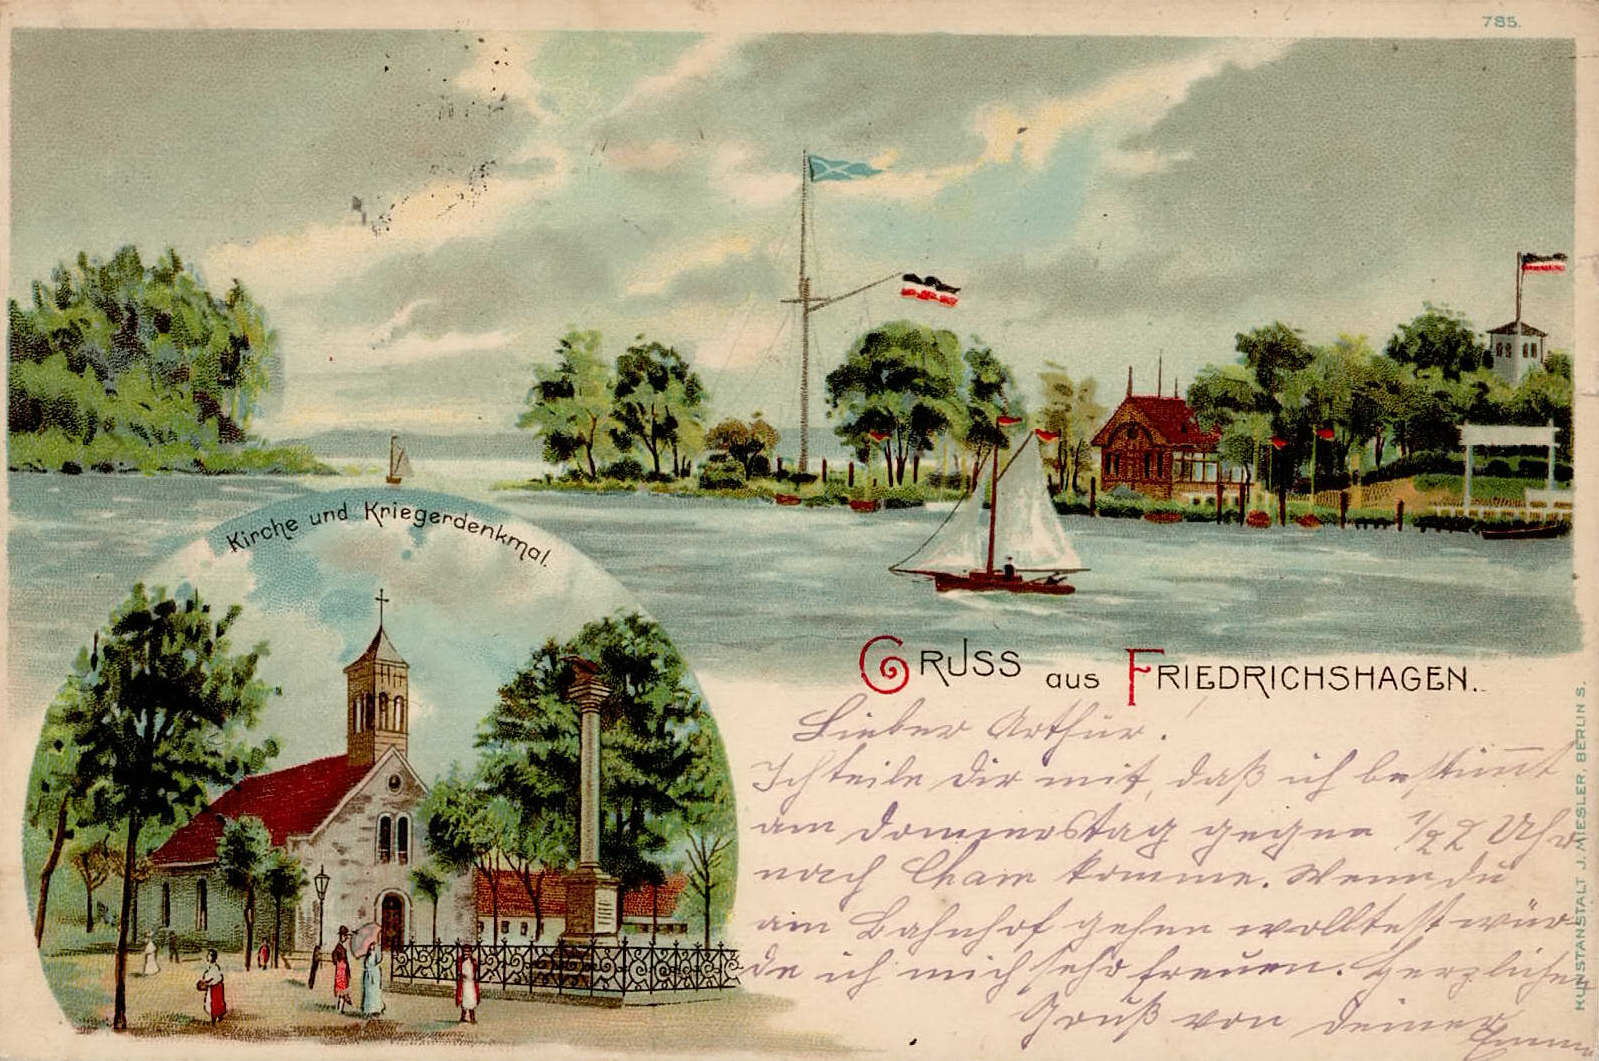 785.
Kirche und Kriegerdenkmal.
Gruss aus Friedrichshagen.
Lieber Arthur.
Ich teile Dir mit, daß ich bestimmt
am Donnerstag gegen 1/2 2 Uhr
nach komme. Wenn du
am Bahnhof gehen wolltest wür
de ich mich sehr freuen. Herzlichen
Gruß von Deiner
KUNSTANSTALT J. MIESLER, BERLIN S.